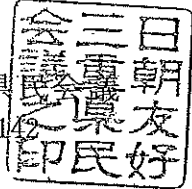 日朝友好
三重県民
会議之印
142